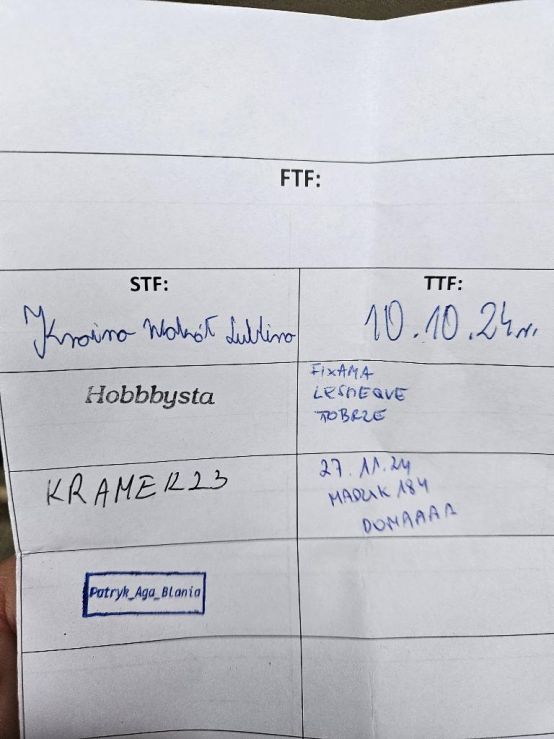 FTF:
STF:
TTF:
Kraina Wokół Lublina
10.10.24 r.
Hobbbysta
FIXAMA
LESNEQVE
TOBRZE
KRAMER23
27.11.24
MADZIK 184
DOMAAAA
Patryk_Aga_Blania